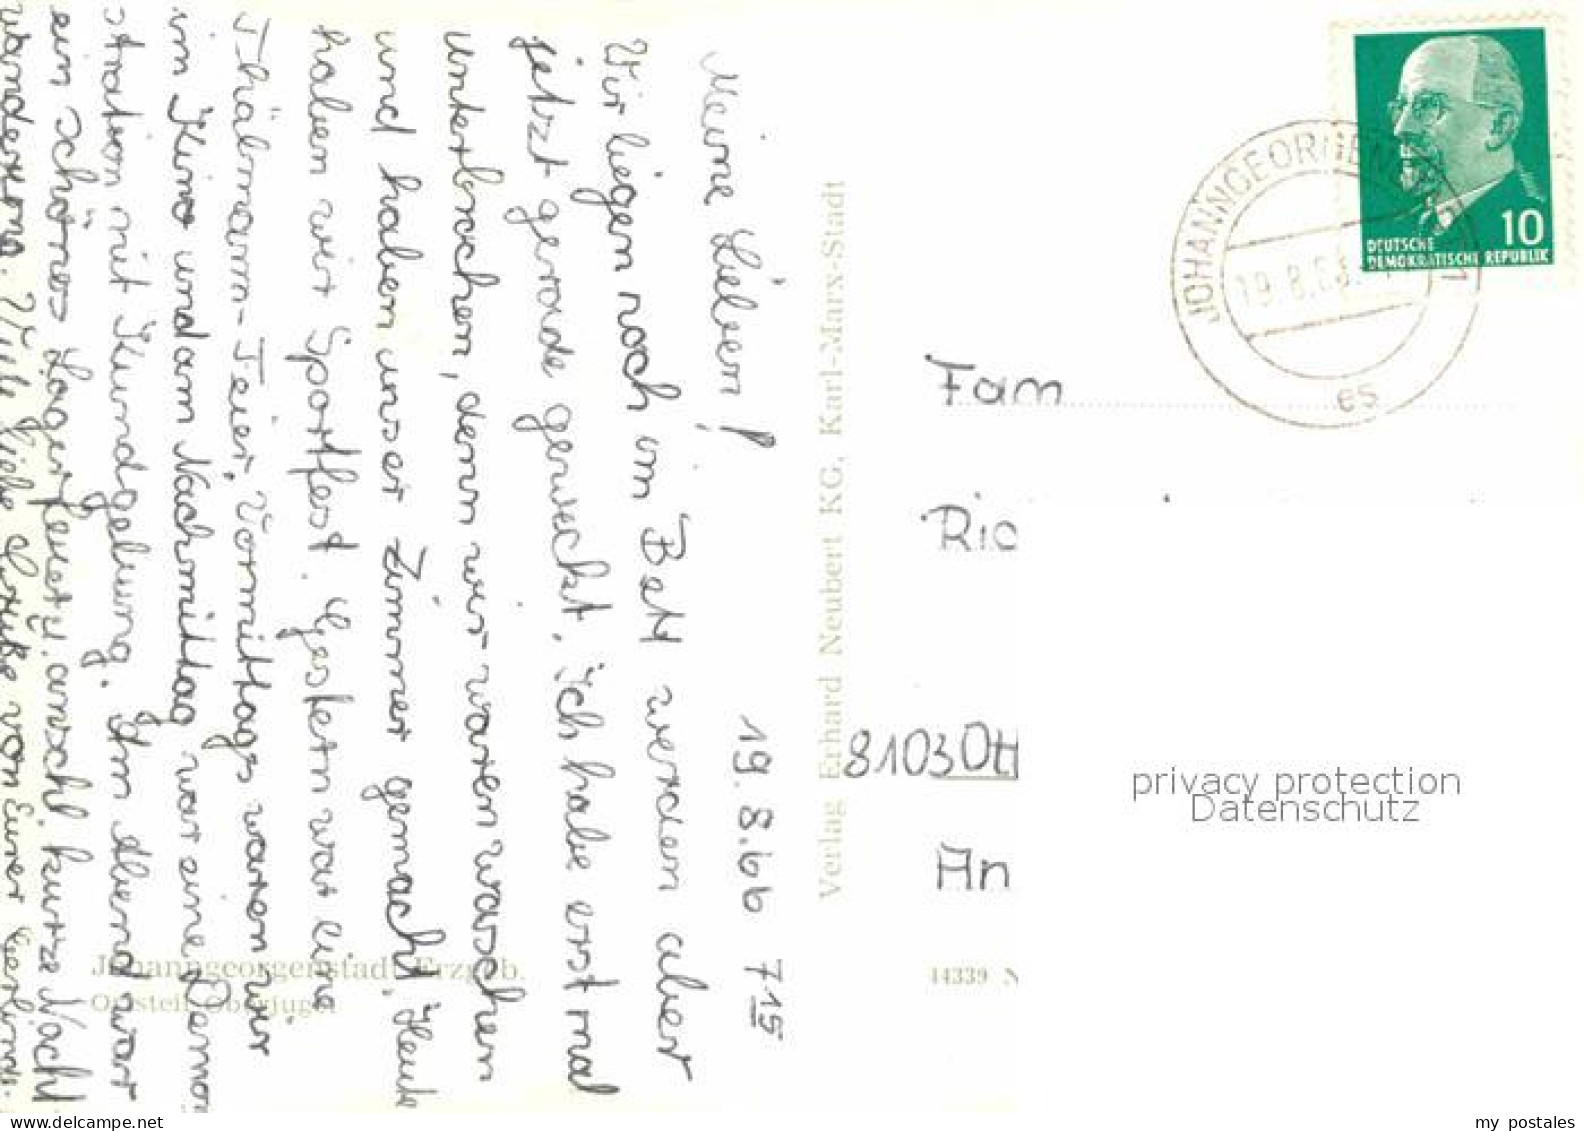 Meine Lieben!
19.8.66 7 15
Wir liegen noch im Bett werden aber
jetzt gerade geweckt. Ich habe erst mal
unterbrochen, denn wir waren waschen
und haben unser Zimmer gemacht. Heute
haben wir Sportfest. Gestern war eine
Thälmann-Feier. Vormittags waren wir
im Kino und am Nachmittag war eine Demon
stration mit Kundgebung. Am Abend war
ein schönes Lagerfeuer u. anschl. kurze Nacht
wanderung. Viele liebe Grüße von Eurer
Johanngeorgenstadt Erzgeb.
Ortsteil Oberjugel
Verlag Erhard Neubert KG, Karl-Marx-Stadt
JOHANNGEORGENSTADT 1
19.8.66
es
10
DEUTSCHE
DEMOKRATISCHE REPUBLIK
Fam
Ric
8103 Ott
An
44339 N
privacy protection
Datenschutz
www.delcampe.net
my_postales